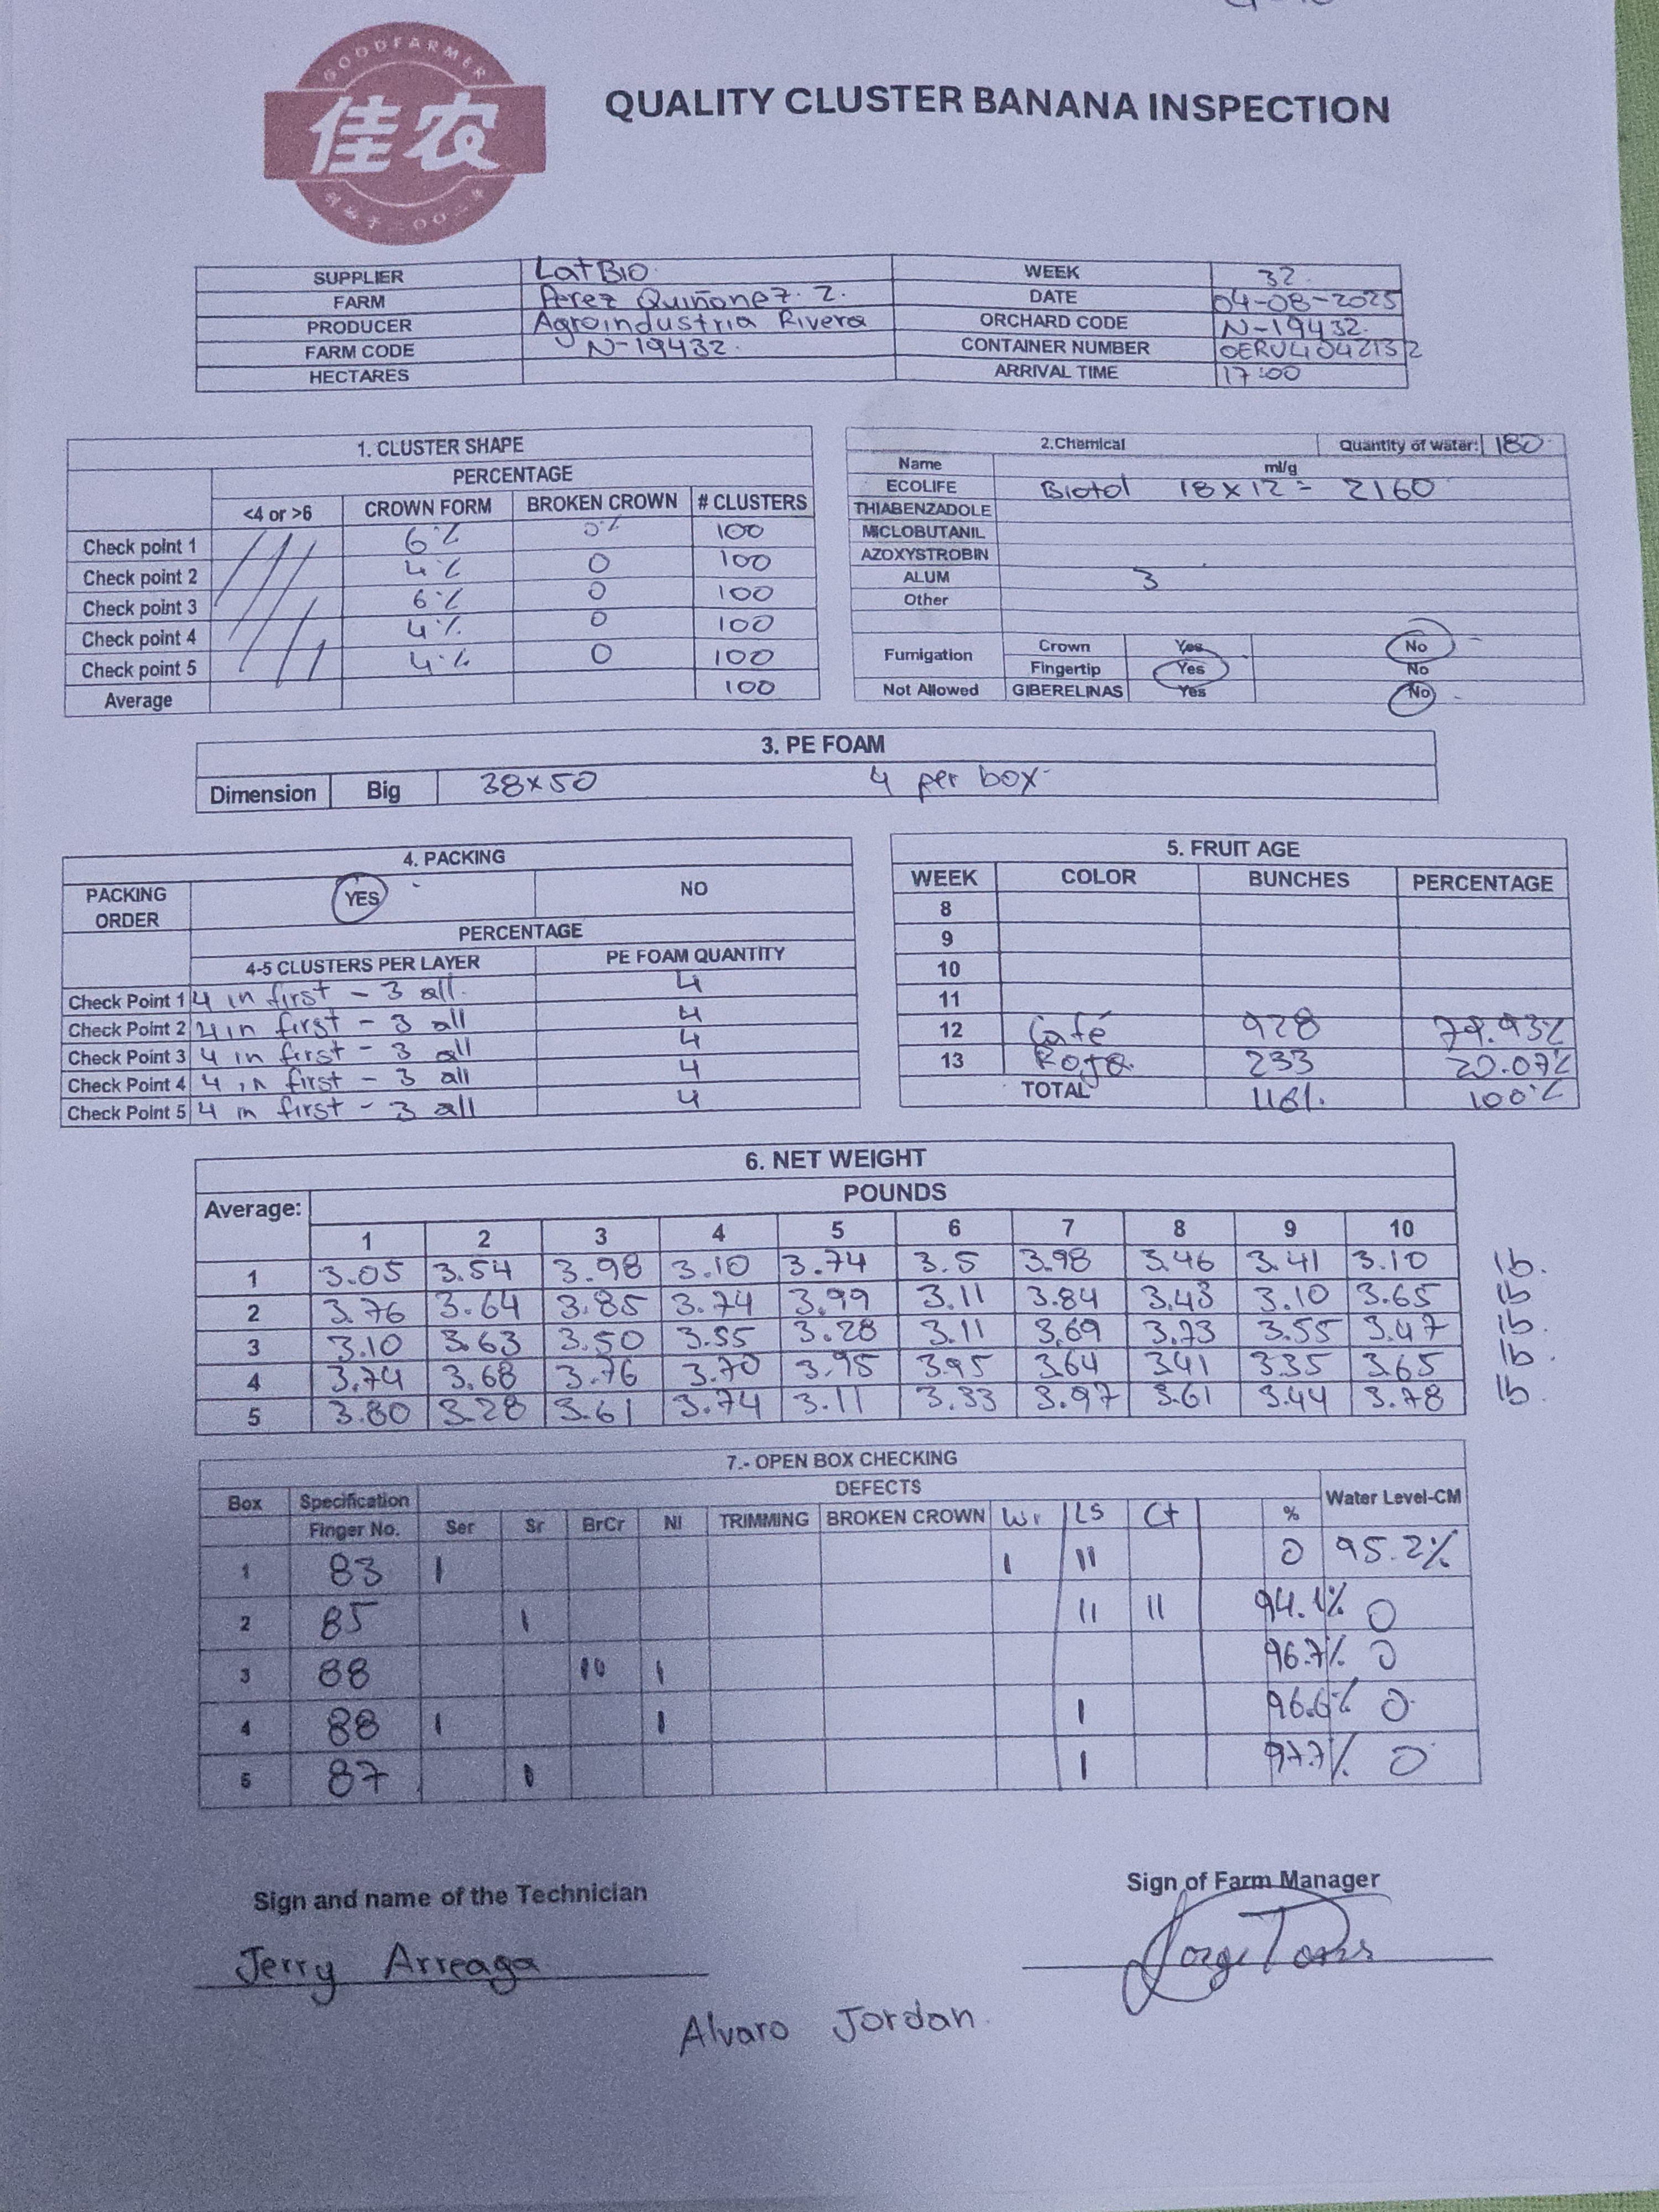 GOODFARMER
佳农
QUALITY CLUSTER BANANA INSPECTION
SUPPLIER LatBio WEEK 32
FARM Perez Quiñonez. 2. DATE 04-08-2025
PRODUCER Agroindustria Rivera ORCHARD CODE N-19432.
FARM CODE N-19432. CONTAINER NUMBER OERU4042132
HECTARES ARRIVAL TIME 17:00
1. CLUSTER SHAPE
PERCENTAGE
<4 or >6 CROWN FORM BROKEN CROWN # CLUSTERS
Check point 1 6% 0% 100
Check point 2 4% 0 100
Check point 3 6% 0 100
Check point 4 4% 0 100
Check point 5 4% 0 100
Average 100
2.Chemical Quantity of water: 180
Name ml/g
ECOLIFE Biotol 18x12= 2160
THIABENZADOLE
MICLOBUTANIL
AZOXYSTROBIN
ALUM 3
Other
Fumigation Crown Yes No
Fingertip Yes No
Not Allowed GIBERELINAS Yes No
3. PE FOAM
Dimension Big 38x50 4 per box
4. PACKING
PACKING ORDER YES NO
PERCENTAGE
4-5 CLUSTERS PER LAYER PE FOAM QUANTITY
Check Point 1 4 in first - 3 all. 4
Check Point 2 4 in first - 3 all 4
Check Point 3 4 in first - 3 all 4
Check Point 4 4 in first - 3 all 4
Check Point 5 4 in first - 3 all 4
5. FRUIT AGE
WEEK COLOR BUNCHES PERCENTAGE
8
9
10
11
12 Café 928 79.93%
13 Roja 233 20.07%
TOTAL 1161. 100%
6. NET WEIGHT
Average: POUNDS
1 2 3 4 5 6 7 8 9 10
1 3.05 3.54 3.98 3.10 3.74 3.5 3.98 3.46 3.41 3.10 lb.
2 3.76 3.64 3.85 3.74 3.99 3.11 3.84 3.43 3.10 3.65 lb
3 3.10 3.63 3.50 3.55 3.28 3.11 3.69 3.73 3.55 3.47 lb.
4 3.74 3.68 3.76 3.70 3.95 3.95 3.64 3.41 3.35 3.65 lb.
5 3.80 3.28 3.61 3.74 3.11 3.33 3.97 3.61 3.44 3.78 lb.
7.- OPEN BOX CHECKING
Box Specification DEFECTS Water Level-CM
Finger No. Ser Sr BrCr NI TRIMMING BROKEN CROWN Wr LS Ct %
1 83 I I II 0 95.2%
2 85 I II II 94.1% 0
3 88 II I 96.7% 0
4 88 I I I 96.6% 0
5 87 I I 97.7% 0
Sign and name of the Technician
Sign of Farm Manager
Jerry Arreaga
Alvaro Jordan